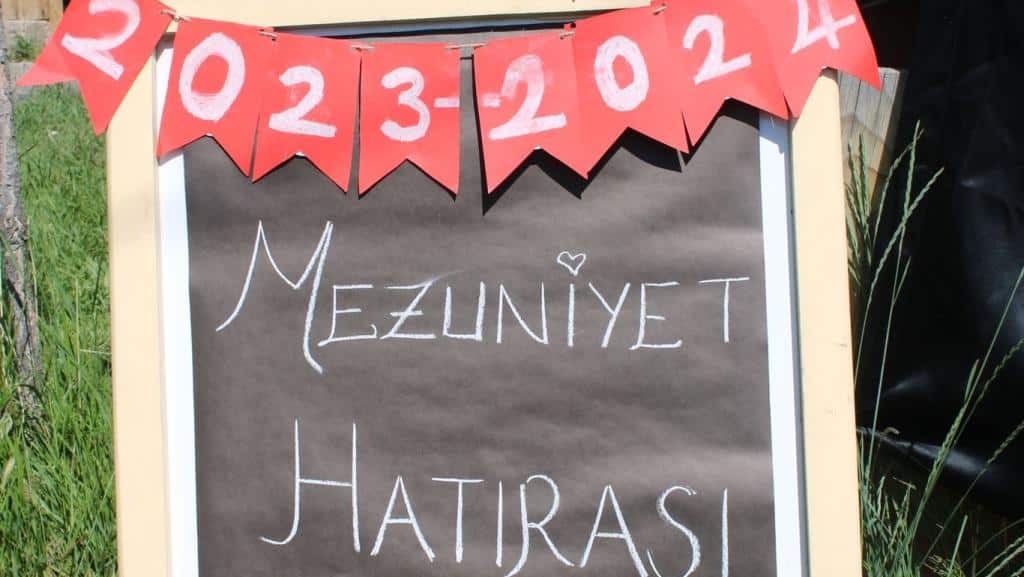 2023-2024
MEZUNİYET
HATIRASI